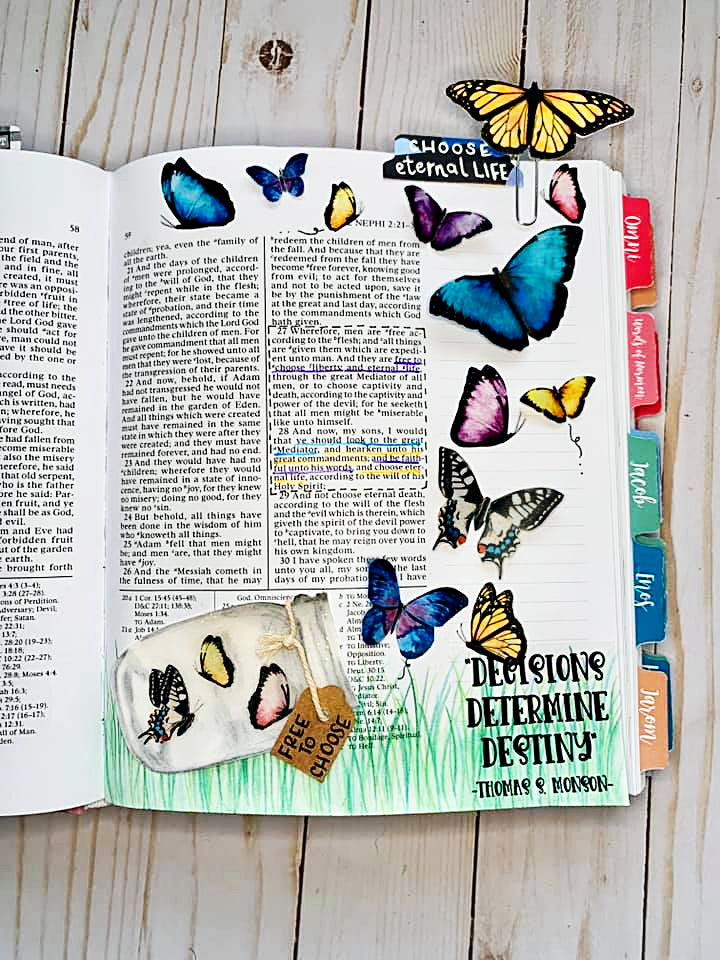 CHOOSE
eternal LIFE
58
end of man, after
our first parents,
the field and the
and in fine, all
created, it must
re was an opposi-
rbidden fruit in
tree of life; the
d the other bitter.
e Lord God gave
e should act for
e, man could not
ave it should be
ed by the one or
according to the
read, must needs
angel of God, ac-
h is written, had
n; wherefore, he
aving sought that
fore God.
e had fallen from
ecome miserable
also the misery
erefore, he said
that old serpent,
ho is the father
ore he said: Par-
en fruit, and ye
shall be as God,
d evil.
m and Eve had
orbidden fruit
ut of the garden
e earth.
e brought forth
59
2 NEPHI 2:21–
children; yea, even the family of
all the earth.
21 And the days of the children
of men were prolonged, accord-
ing to the will of God, that they
might repent while in the flesh;
wherefore, their state became a
state of probation, and their time
was lengthened, according to the
commandments which the Lord God
gave unto the children of men. For
he gave commandment that all men
must repent; for he showed unto all
men that they were lost, because of
the transgression of their parents.
22 And now, behold, if Adam
had not transgressed he would not
have fallen, but he would have
remained in the garden of Eden.
And all things which were created
must have remained in the same
state in which they were after they
were created; and they must have
remained forever, and had no end.
23 And they would have had no
children; wherefore they would
have remained in a state of inno-
cence, having no joy, for they knew
no misery; doing no good, for they
knew no sin.
24 But behold, all things have
been done in the wisdom of him
who knoweth all things.
25 Adam fell that men might
be; and men are, that they might
have joy.
26 And the Messiah cometh in
the fulness of time, that he may
redeem the children of men from
the fall. And because that they are
redeemed from the fall they have
become free forever, knowing good
from evil; to act for themselves
and not to be acted upon, save it
be by the punishment of the law
at the great and last day, according
to the commandments which God
hath given.
27 Wherefore, men are free ac-
cording to the flesh; and all things
are given them which are expedi-
ent unto man. And they are free to
choose liberty and eternal life,
through the great Mediator of all
men, or to choose captivity and
death, according to the captivity and
power of the devil; for he seeketh
that all men might be miserable
like unto himself.
28 And now, my sons, I would
that ye should look to the great
Mediator, and hearken unto his
great commandments; and be faith-
ful unto his words, and choose eter-
nal life, according to the will of his
Holy Spirit;
29 And not choose eternal death,
according to the will of the flesh
and the evil which is therein, which
giveth the spirit of the devil power
to captivate, to bring you down to
hell, that he may reign over you in
his own kingdom.
30 I have spoken these few words
unto you all, my sons, in the last
days of my probation; I have
20a 1 Cor. 15:45 (45–48)
D&C 27:11; 138:38;
Moses 1:34.
TG Adam.
God, Omniscience
Opposition.
TG Liberty.
Deut. 30:15.
D&C 10:22.
TG Jesus Christ,
Mediator.
TG Bondage, Spiritual.
TG Hell.
FREE
TO
CHOOSE
"DECISIONS
DETERMINE
DESTINY"
-THOMAS S. MONSON-
Omni
Words of Mormon
Jacob
Enos
Jarom